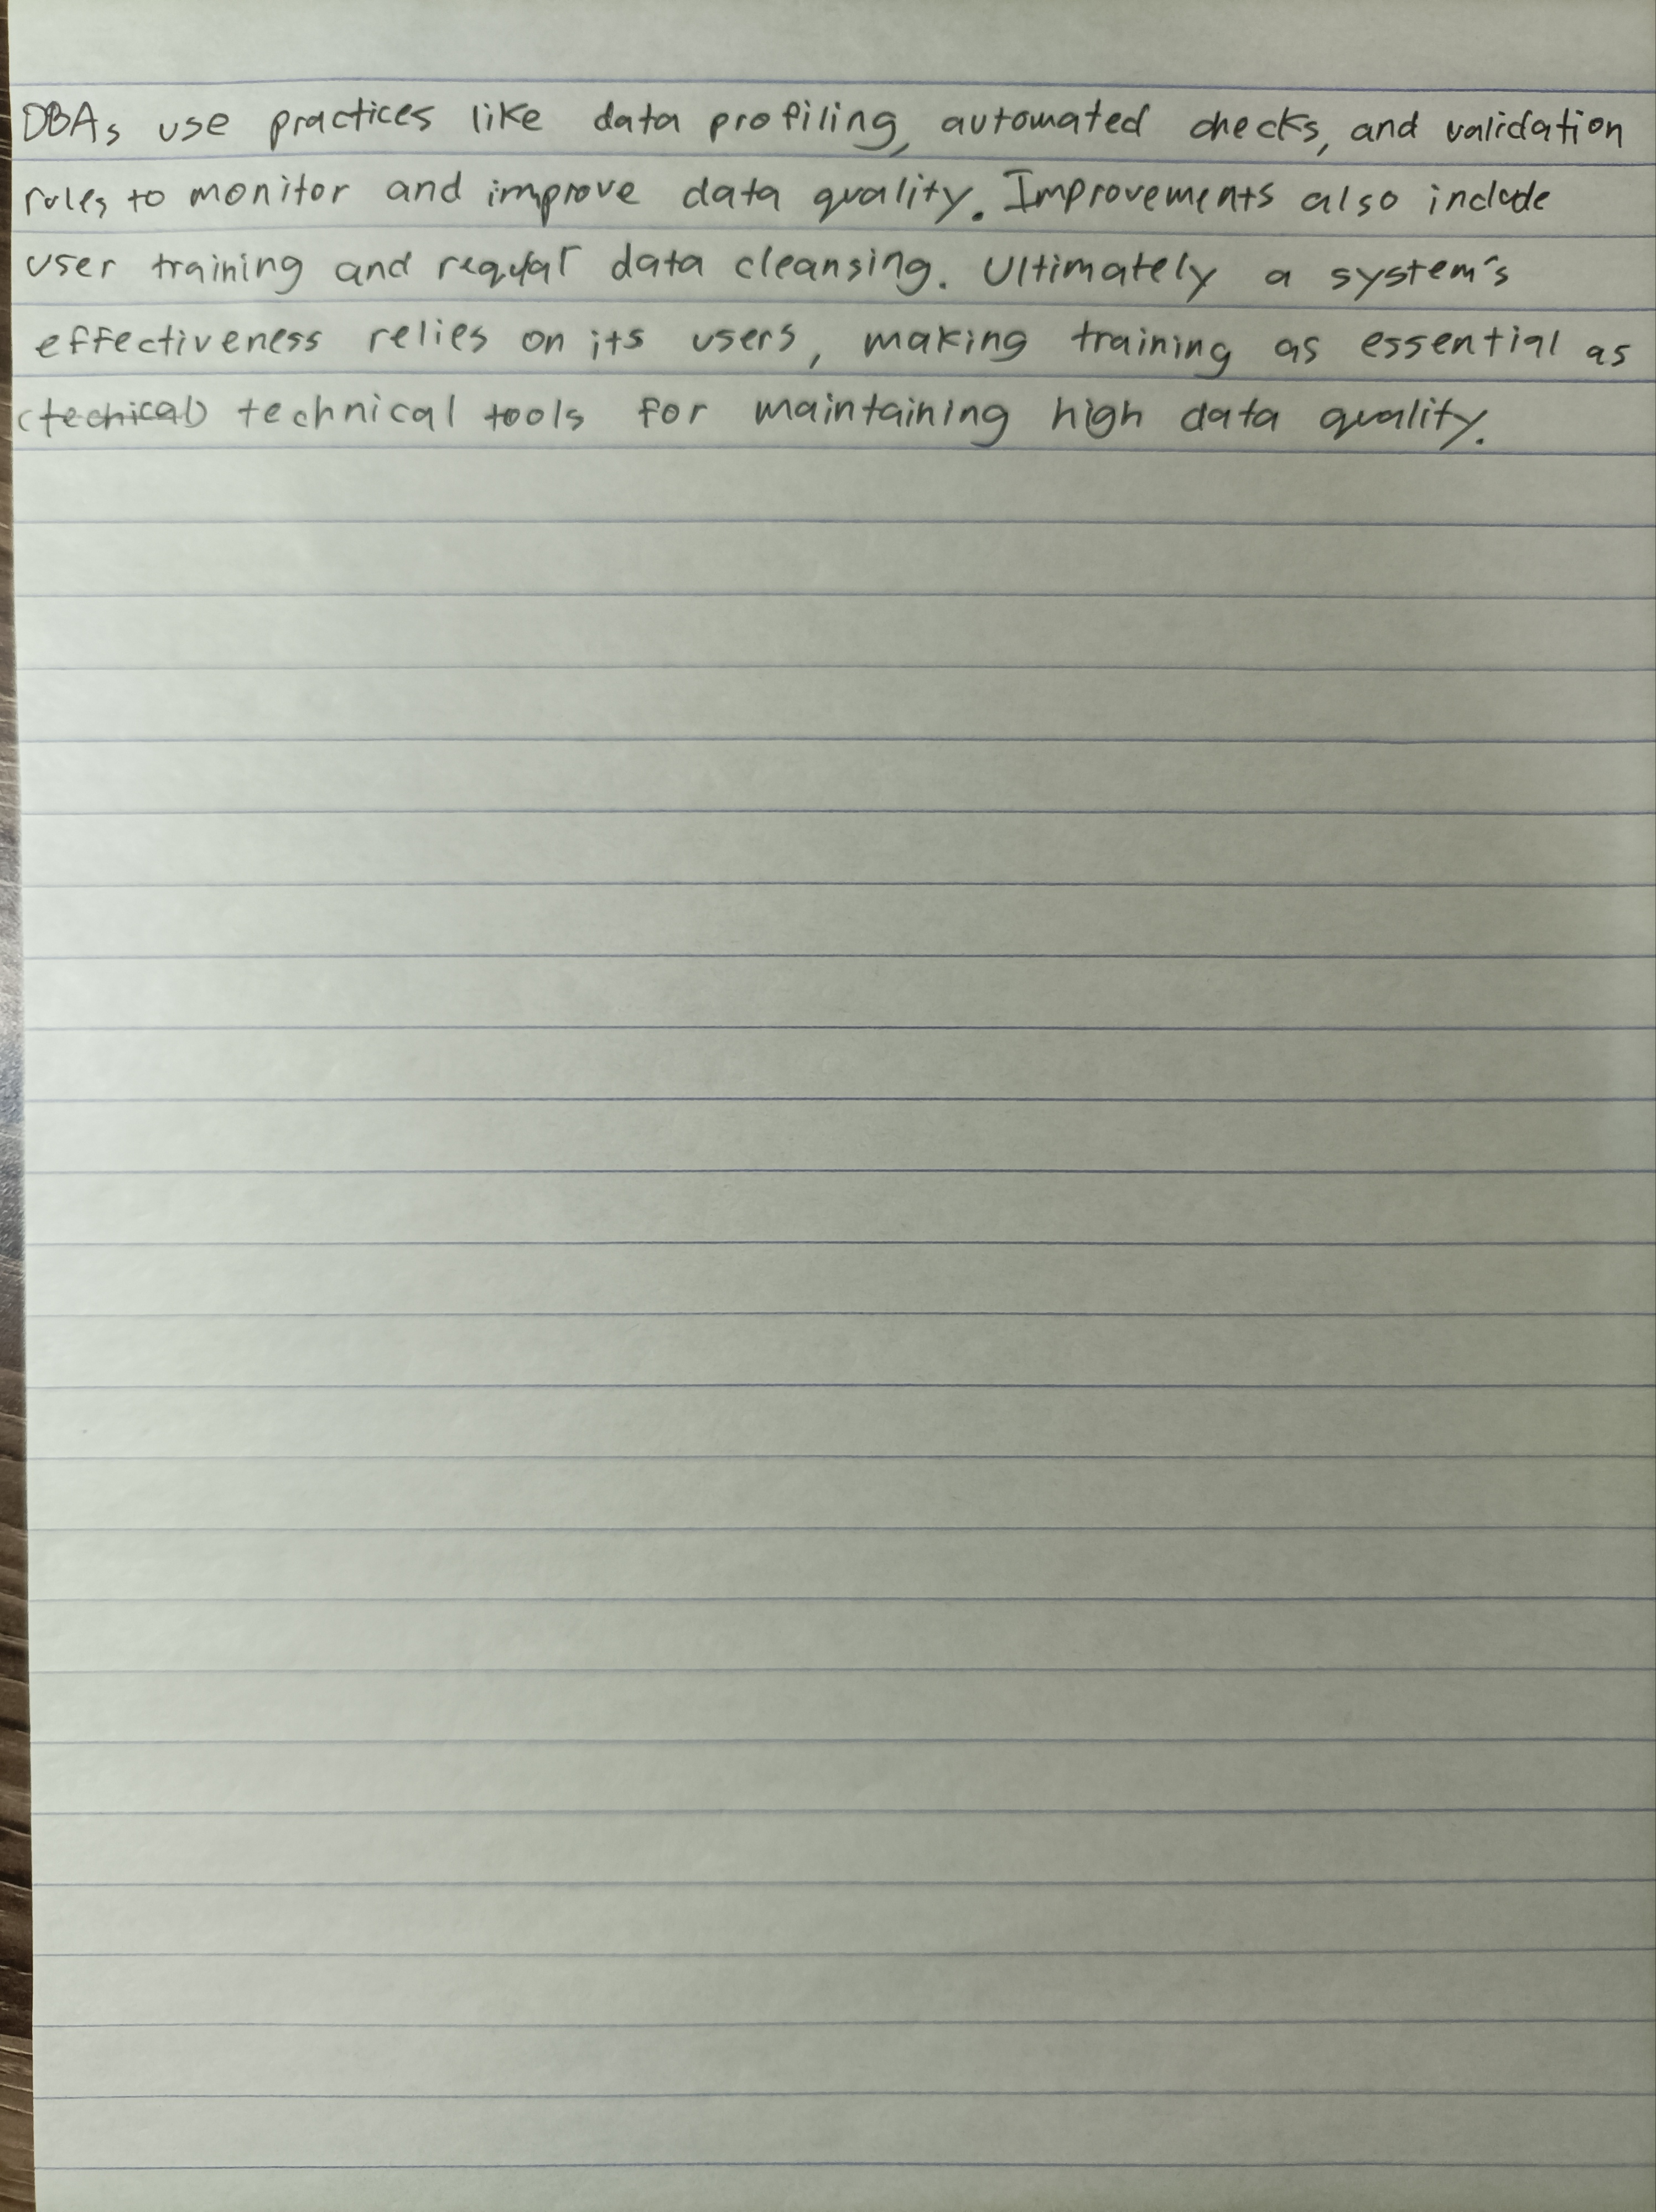 DBAs use practices like data profiling, automated checks, and validation
rules to monitor and improve data quality. Improvements also include
user training and regular data cleansing. Ultimately a system's
effectiveness relies on its users, making training as essential as
(techical) technical tools for maintaining high data quality.